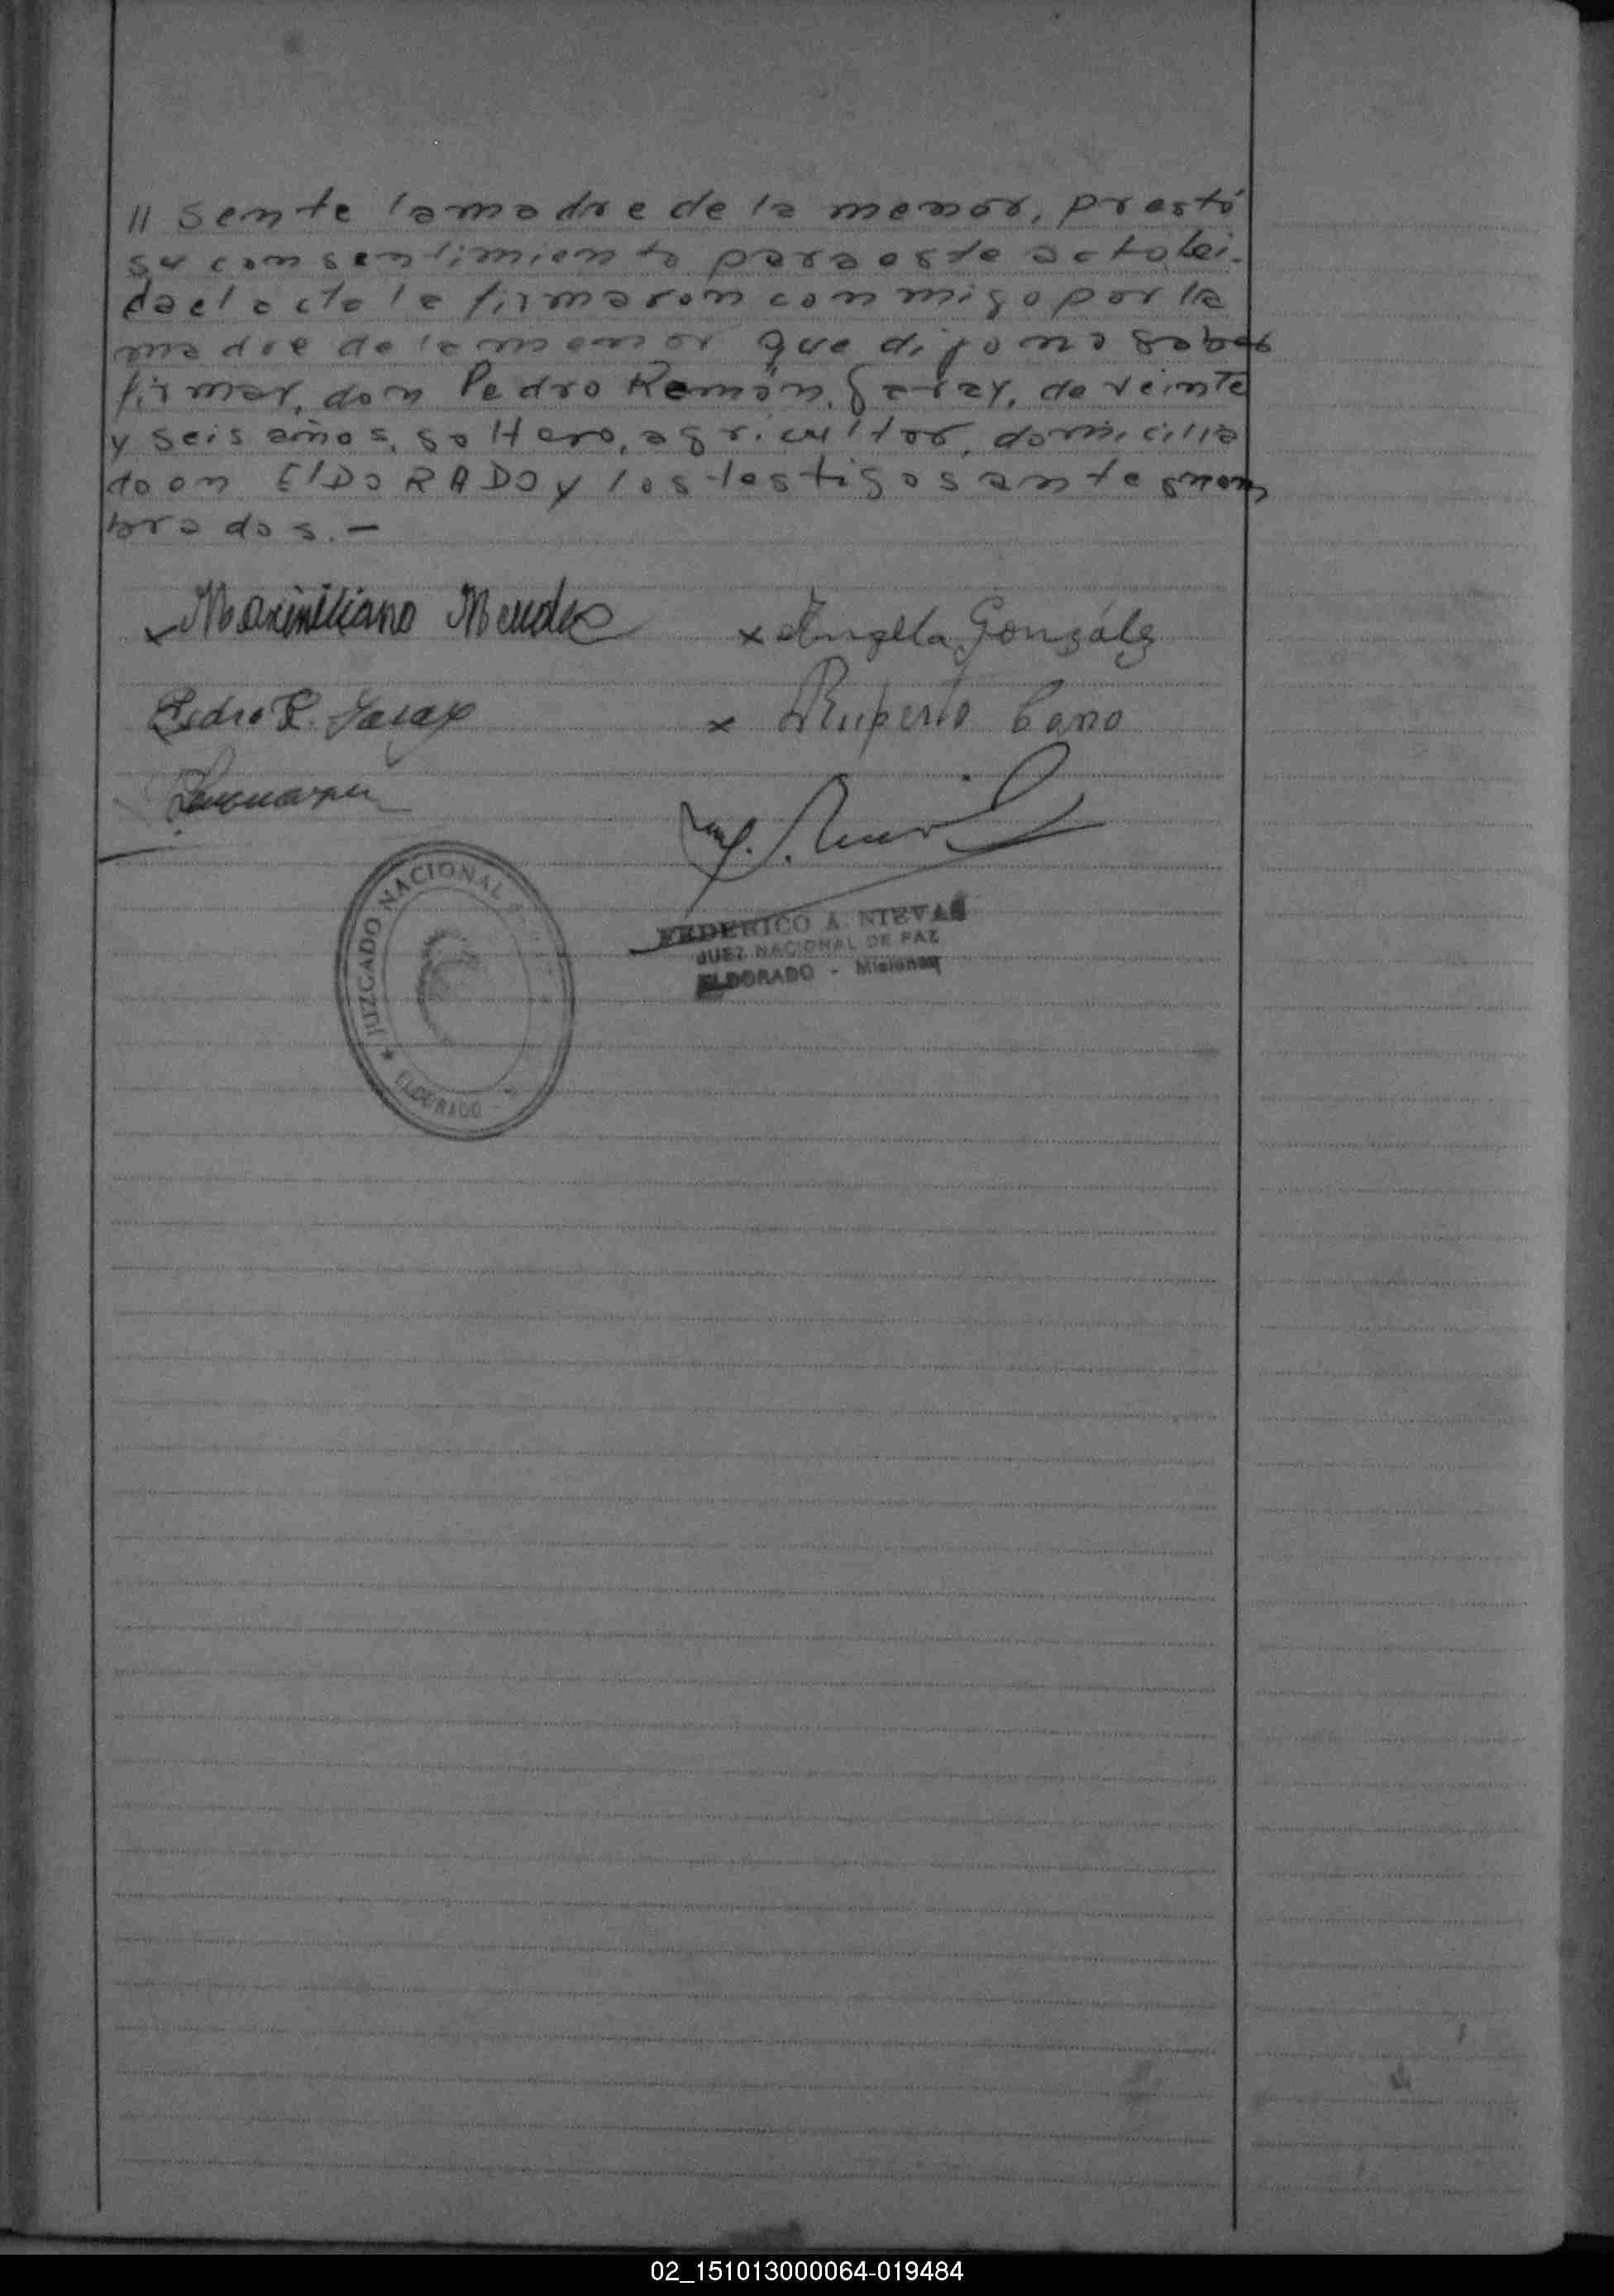 // sente la madre de la menor, prestó
su consentimiento para este acto. Lei-
da el acta la firmaron conmigo por la
madre de la menor que dijo no saber
firmar, don Pedro Ramón Garay, de veinte
y seis años, soltero, agricultor, domicilia
do en ElDORADO y los testigos antesnom
brados.-
x Maximiliano Mendez x Angela González
Pedro R. Garay x Ruperto Cano
JUZGADO NACIONAL
★ ELDORADO -
FEDERICO A. NIEVAS
JUEZ NACIONAL DE PAZ
ELDORADO - Misiones
02_151013000064-019484